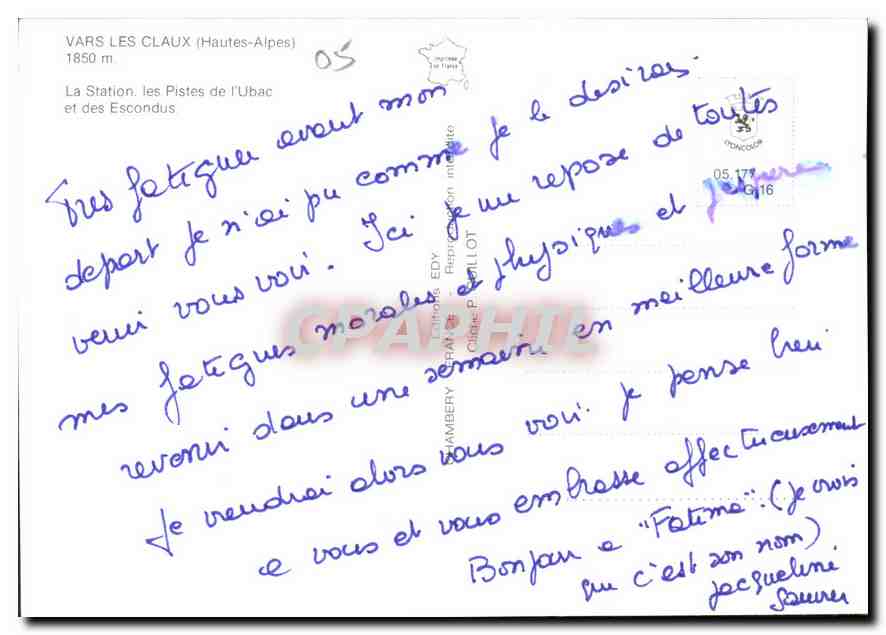 VARS LES CLAUX (Hautes-Alpes)
1850 m.
La Station, les Pistes de l'Ubac
et des Escondus.
05
IMPRIMÉ
EN FRANCE
LYONCOLOR
05.177
G 16
CHAMBERY FRANCE - Editions EDY - Reproduction interdite
Cliché P.
CPAPHIL
Tres fatiguee avant mon
depart je n'ai pu comme je le desirais.
venir vous voir. Ici je me repose de toutes
mes fatigues morales et physiques et j'espere
revenir dans une semaine en meilleure forme
Je viendrai alors vous voir. je pense bien
a vous et vous embrasse affectueusement
Bonjour a "Fatima". (je crois
que c'est son nom)
Jacqueline